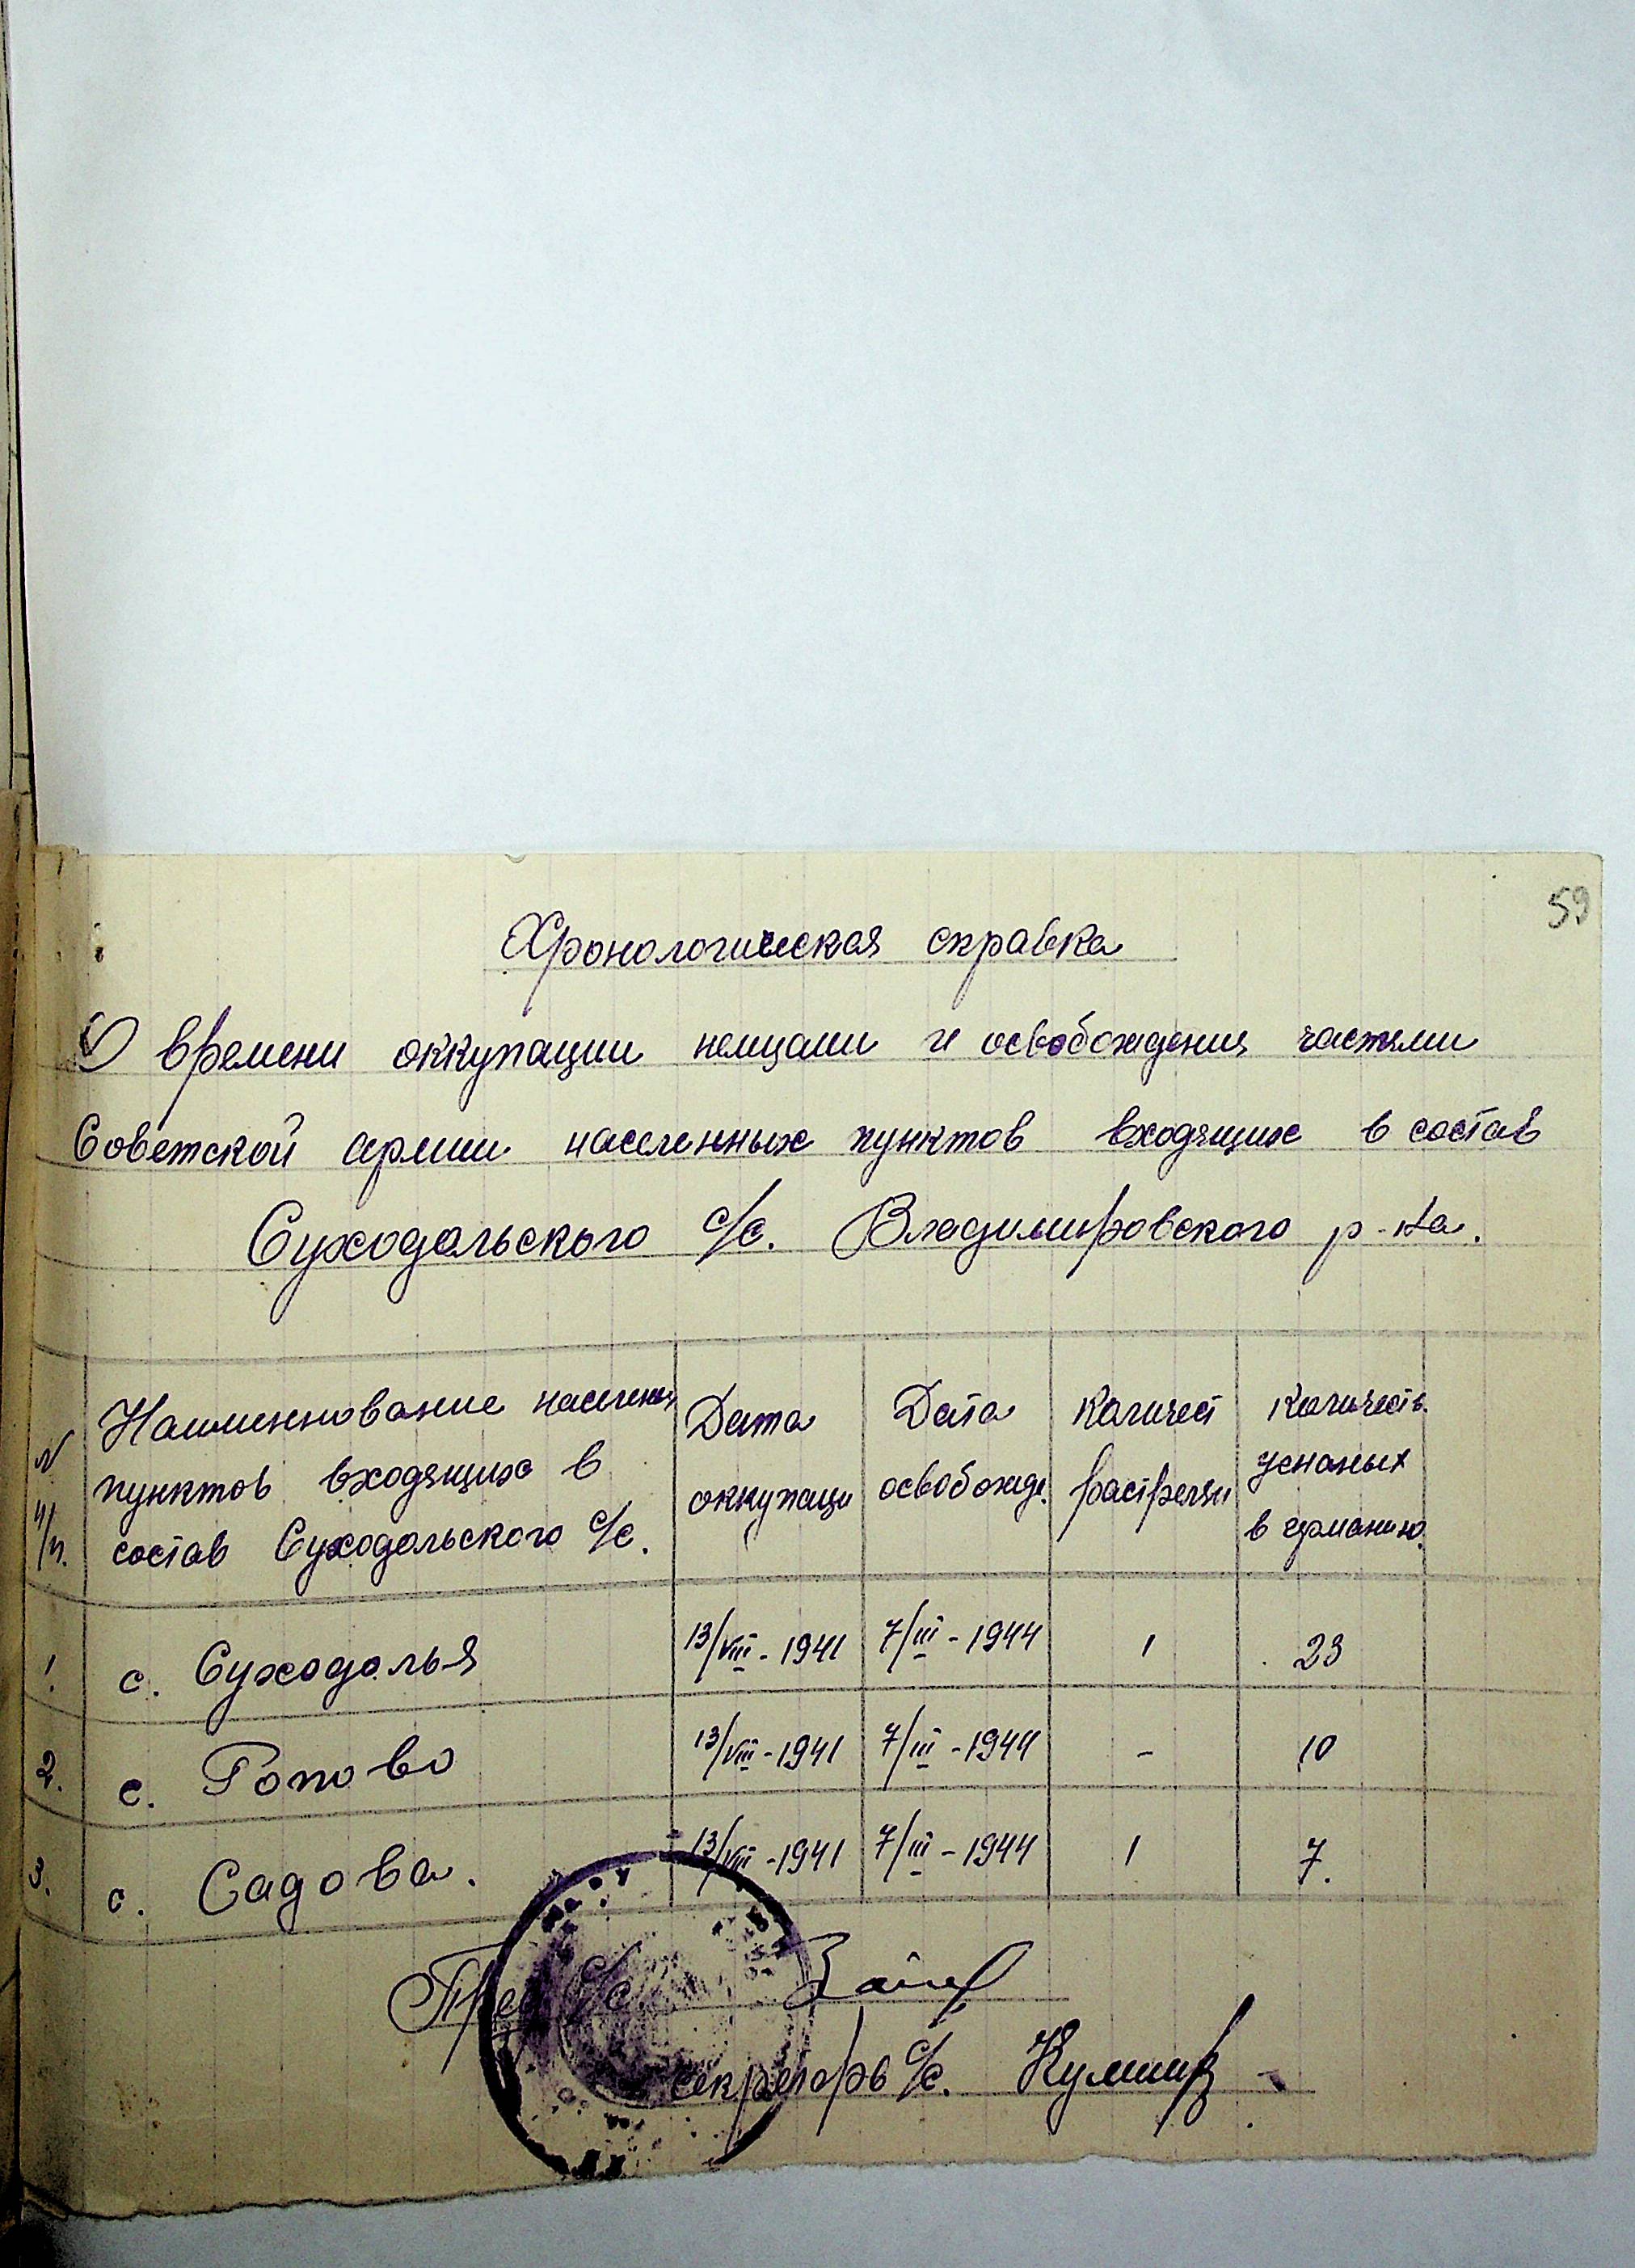 59
Хронологическая справка
О времени оккупации немцами и освобождения частями
Советской армии населенных пунктов входящих в состав
Суходольского с/с. Владимировского р-на.
N п/п. Наименнование населенн пунктов входящих в состав Суходольского с/с. Дата оккупаци Дата освобожде. Количест растрелян Количеств. угнаных в германию.
1. с. Суходолья 13/VIII-1941 7/III-1944 1 23
2. с. Попово 13/VIII-1941 7/III-1944 - 10
3. с. Садова. 13/VIII-1941 7/III-1944 1 7.
Пред с/с.
секретарь с/с.